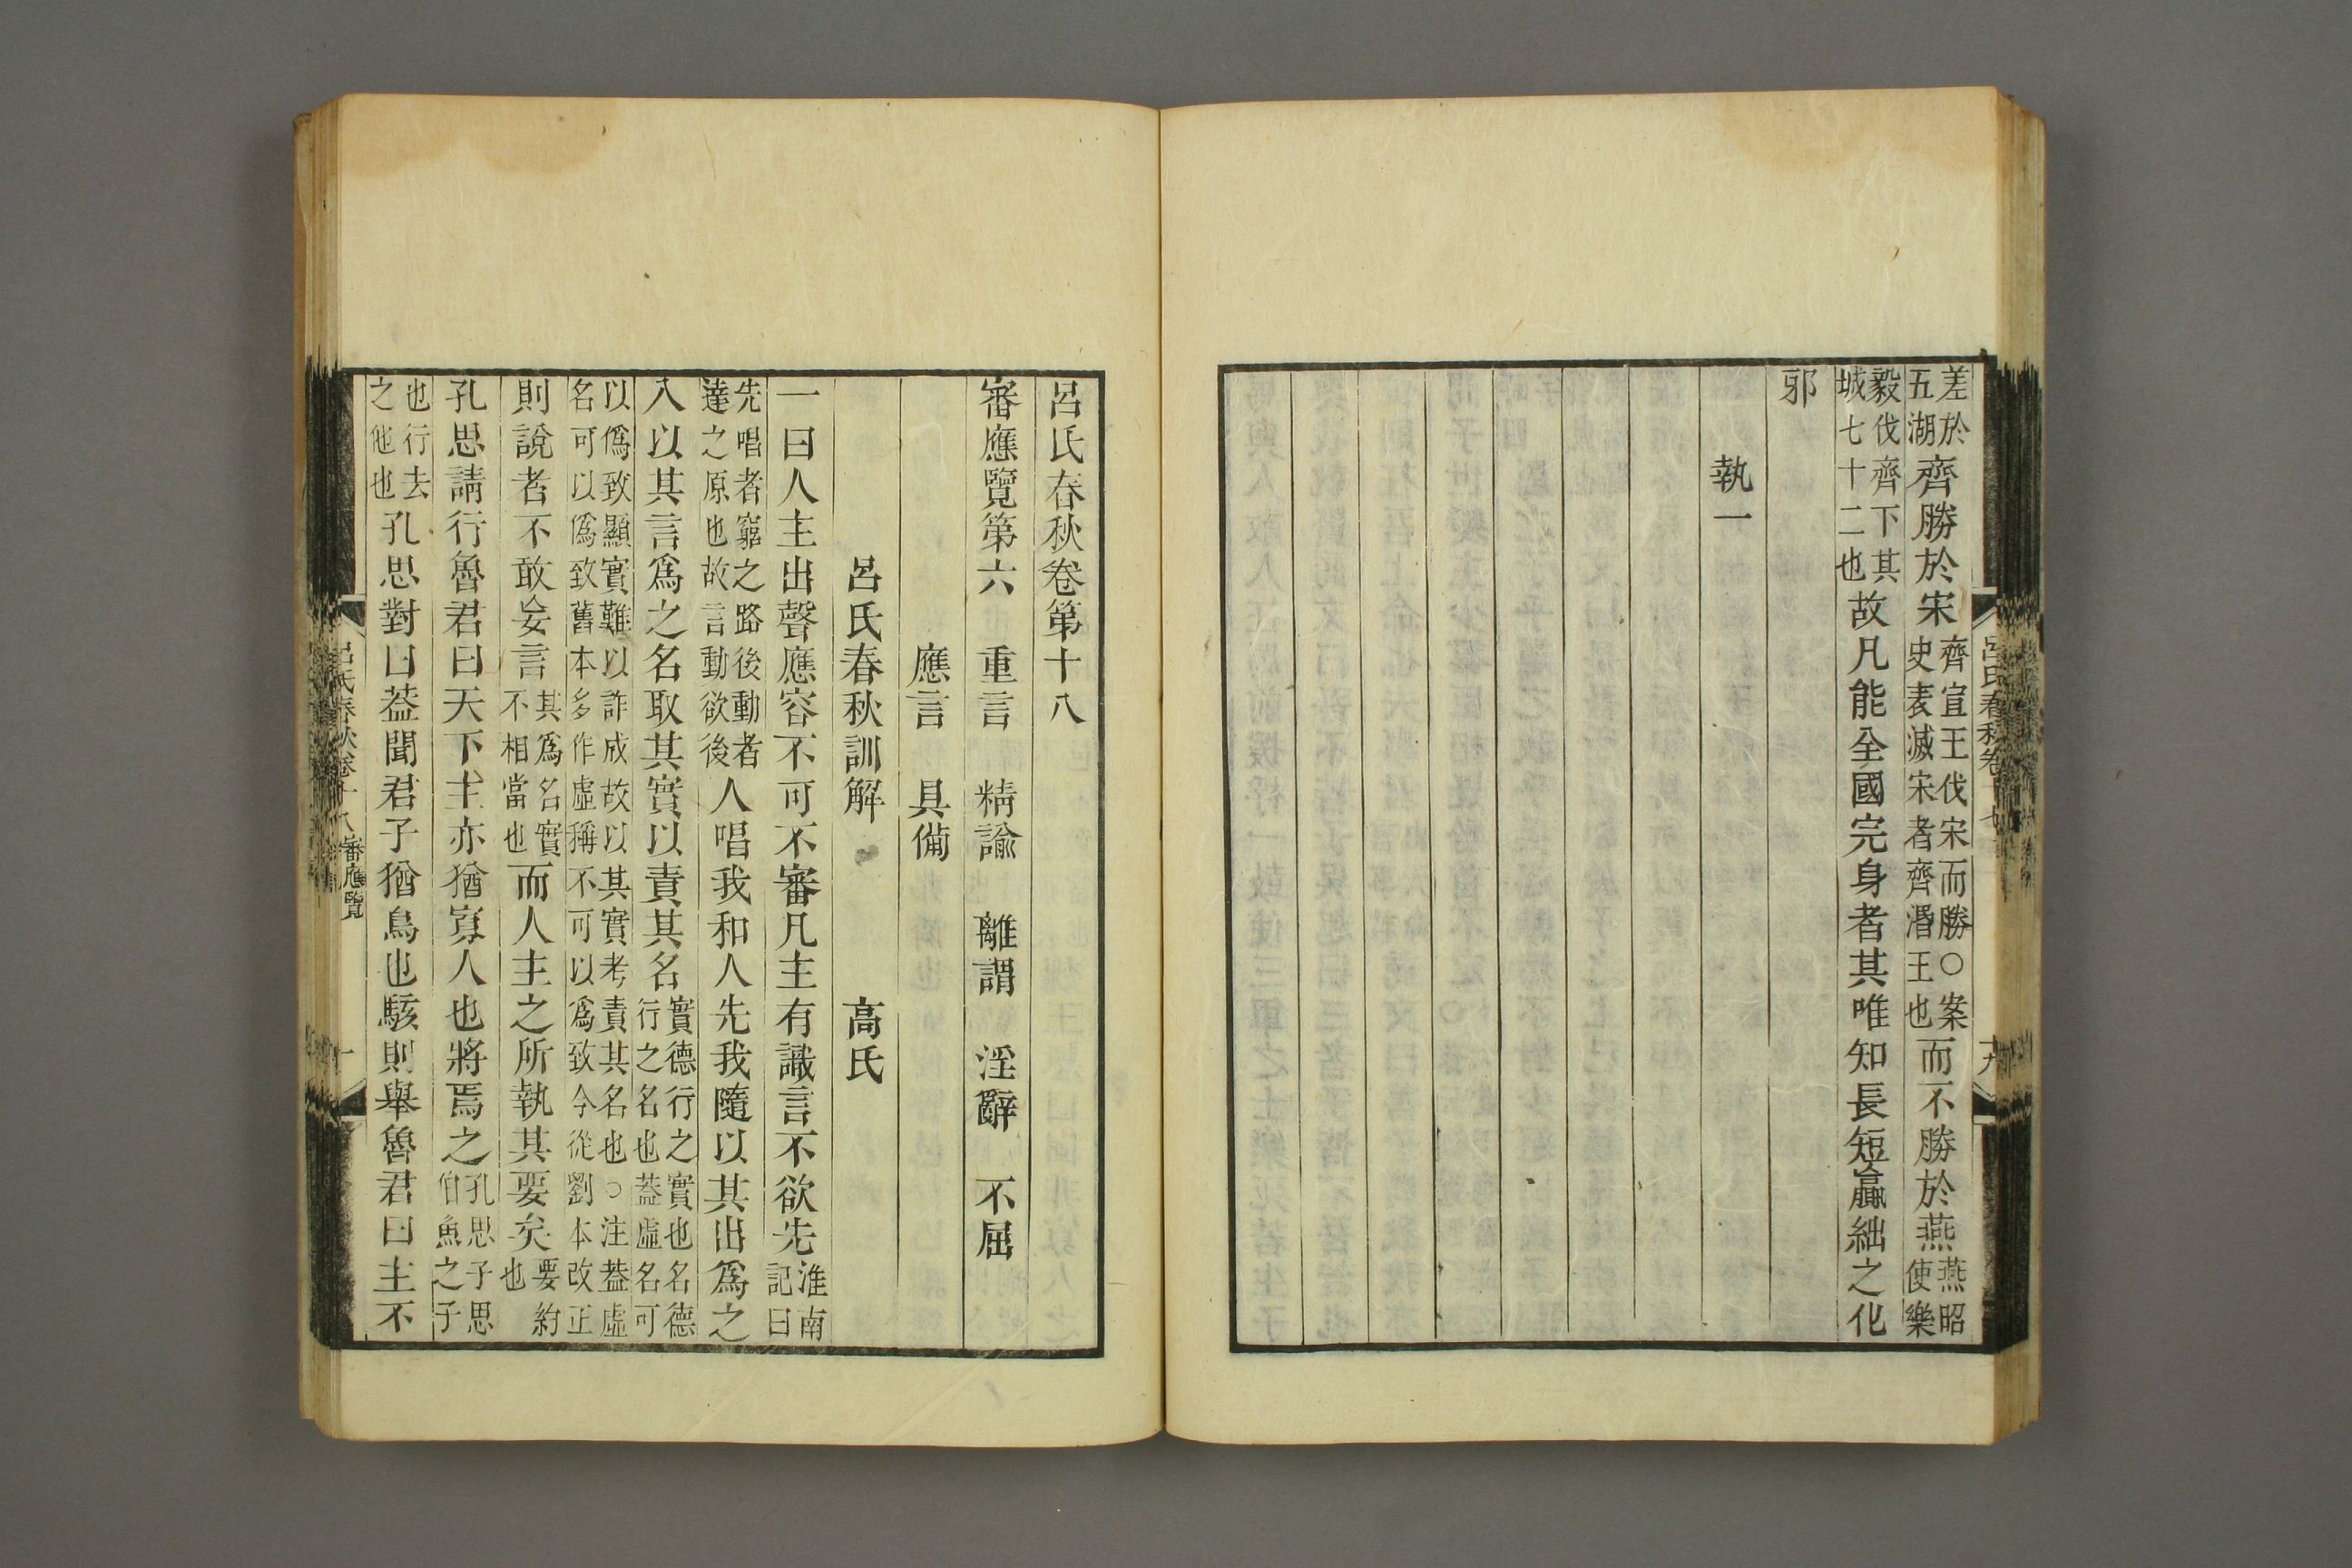 差於五湖齊勝於宋齊宣王伐宋而勝○案史表滅宋者齊湣王也而不勝於燕燕昭使樂
毅伐齊下其城七十二也故凡能全國完身者其唯知長短贏絀之化
邪
執一
呂氏春秋卷十七
十九
呂氏春秋卷第十八
審應覽第六 重言 精諭 離謂 淫辭 不屈
應言 具備
呂氏春秋訓解 高氏
一曰人主出聲應容不可不審凡主有識言不欲先淮南記曰
先唱者窮之路後動者達之原也故言動欲後人唱我和人先我隨以其出爲之
入以其言爲之名取其實以責其名實德行之實也名德行之名也葢虛名可
以僞致顯實難以詐成故以其實考責其名也○注葢虛名可以僞致舊本多作虛稱不可以爲致今從劉本改正
則說者不敢妄言其爲名實不相當也而人主之所執其要矣要約也
孔思請行魯君曰天下主亦猶寡人也將焉之孔思子思伯魚之子
也行去之他也孔思對曰葢聞君子猶鳥也駭則舉魯君曰主不
呂氏春秋卷十八 審應覽
一